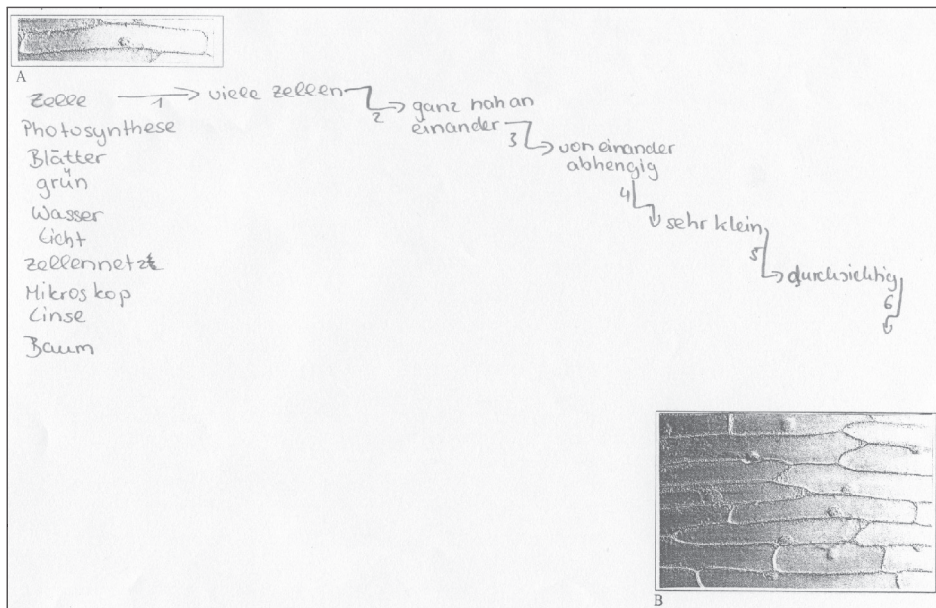 A
Zelle
1
viele zellen
2
ganz nah an
einander
3
von einander
abhengig
4
sehr klein
5
durchsichtig
6
Photosynthese
Blätter
grün
Wasser
Licht
Zellennetz
Mikroskop
Linse
Baum
B